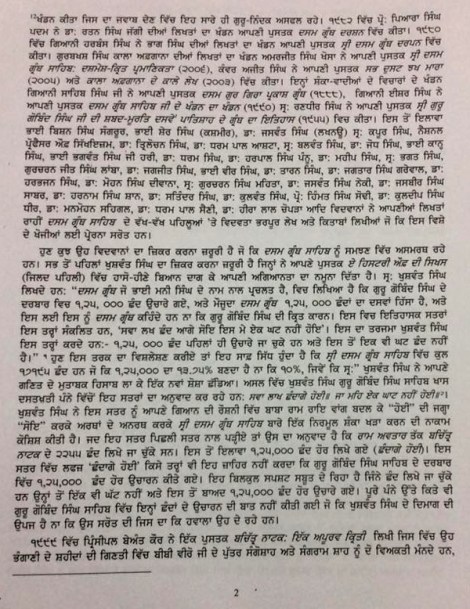 ਖੰਡਨ ਕੀਤਾ ਜਿਸ ਦਾ ਜਵਾਬ ਦੇਣ ਵਿੱਚ ਇਹ ਸਾਰੇ ਹੀ ਗੁਰੂ-ਨਿੰਦਕ ਅਸਫਲ ਰਹੇ। ੧੯੮੨ ਵਿੱਚ ਪ੍ਰੋ: ਪਿਆਰਾ ਸਿੰਘ
ਪਦਮ ਨੇ ਡਾ: ਰਤਨ ਸਿੰਘ ਜੱਗੀ ਦੀਆਂ ਲਿਖਤਾਂ ਦਾ ਖੰਡਨ ਆਪਣੀ ਪੁਸਤਕ ਦਸਮ ਗ੍ਰੰਥ ਦਰਸ਼ਨ ਵਿੱਚ ਕੀਤਾ। ੧੯੮੦
ਵਿੱਚ ਗਿਆਨੀ ਹਰਬੰਸ ਸਿੰਘ ਨੇ ਭਾਗ ਸਿੰਘ ਦੀਆਂ ਲਿਖਤਾਂ ਦਾ ਖੰਡਨ ਆਪਣੀ ਪੁਸਤਕ ਸ੍ਰੀ ਦਸਮ ਗ੍ਰੰਥ ਦਰਪਨ ਵਿੱਚ
ਕੀਤਾ। ਗੁਰਬਖਸ਼ ਸਿੰਘ ਕਾਲਾ ਅਫਗਾਨਾ ਦੀਆਂ ਲਿਖਤਾਂ ਦਾ ਖੰਡਨ ਅਮਰਜੀਤ ਸਿੰਘ ਖੋਸਾ ਨੇ ਆਪਣੀ ਪੁਸਤਕ ਸ੍ਰੀ ਦਸਮ
ਗ੍ਰੰਥ ਸਾਹਿਬ: ਦਸ਼ਮੇਸ਼-ਕ੍ਰਿਤ ਪ੍ਰਮਾਣਿਕਤਾ (੨੦੦੬), ਕੰਵਰ ਅਜੀਤ ਸਿੰਘ ਨੇ ਆਪਣੀ ਪੁਸਤਕ ਸਭ ਦੁਸ਼ਟ ਝਖ ਮਾਰਾ
(੨੦੦੫) ਅਤੇ ਕਾਲਾ ਅਫਗਾਨਾ ਦੇ ਕਾਲੇ ਲੇਖ (੨੦੦੩) ਵਿੱਚ ਕੀਤਾ। ਇਨ੍ਹਾਂ ਸ਼ੰਕਾ-ਵਾਦੀਆਂ ਦੇ ਵਿਚਾਰਾਂ ਦੇ ਖੰਡਨ
ਗਿਆਨੀ ਸਾਹਿਬ ਸਿੰਘ ਜੀ ਨੇ ਆਪਣੀ ਪੁਸਤਕ ਦਸਮ ਗੁਰ ਗਿਰਾ ਪ੍ਰਕਾਸ਼ ਗ੍ਰੰਥ (੧੮੮੮), ਗਿਆਨੀ ਈਸ਼ਰ ਸਿੰਘ ਨੇ
ਆਪਣੀ ਪੁਸਤਕ ਦਸਮ ਗ੍ਰੰਥ ਸਾਹਿਬ ਜੀ ਦੇ ਖੰਡਨ ਦਾ ਖੰਡਨ (੧੯੯੦) ਸ੍ਰ: ਰਣਧੀਰ ਸਿੰਘ ਨੇ ਆਪਣੀ ਪੁਸਤਕ ਸ੍ਰੀ ਗੁਰੂ
ਗੋਬਿੰਦ ਸਿੰਘ ਜੀ ਦੀ ਸ਼ਬਦ-ਮੂਰਤਿ ਦਸਵੇਂ ਪਾਤਿਸ਼ਾਹ ਦੇ ਗ੍ਰੰਥ ਦਾ ਇਤਿਹਾਸ (੧੯੫੫) ਵਿਚ ਕੀਤਾ। ਇਸ ਤੋਂ ਇਲਾਵਾ
ਭਾਈ ਬਿਸ਼ਨ ਸਿੰਘ ਸੰਗਰੂਰ, ਭਾਈ ਸ਼ੇਰ ਸਿੰਘ (ਕਸ਼ਮੀਰ), ਡਾ: ਜਸਵੰਤ ਸਿੰਘ (ਲਖਨਊ) ਸ੍ਰ: ਕਪੂਰ ਸਿੰਘ, ਨੈਸ਼ਨਲ
ਪ੍ਰੋਫੈਸਰ ਔਫ ਸਿੱਖਇਜ਼ਮ, ਡਾ: ਤ੍ਰਿਲੋਚਨ ਸਿੰਘ, ਡਾ: ਧਰਮ ਪਾਲ ਆਸ਼ਟਾ, ਸ੍ਰ: ਬਲਵੰਤ ਸਿੰਘ, ਡਾ: ਜੋਧ ਸਿੰਘ, ਭਾਈ ਕਾਨ੍ਹ
ਸਿੰਘ, ਭਾਈ ਭਗਵੰਤ ਸਿੰਘ ਜੀ ਹਰੀ, ਡਾ: ਧਰਮ ਸਿੰਘ, ਡਾ: ਹਰਪਾਲ ਸਿੰਘ ਪੰਨੂ, ਡਾ: ਮਹੀਪ ਸਿੰਘ, ਸ੍ਰ: ਭਗਤ ਸਿੰਘ,
ਗੁਰਚਰਨ ਜੀਤ ਸਿੰਘ ਲਾਂਬਾ, ਡਾ: ਜਗਜੀਤ ਸਿੰਘ, ਭਾਈ ਵੀਰ ਸਿੰਘ, ਡਾ: ਤਾਰਨ ਸਿੰਘ, ਡਾ: ਜਗਤਾਰ ਸਿੰਘ ਗਰੇਵਾਲ, ਡਾ:
ਹਰਭਜਨ ਸਿੰਘ, ਡਾ: ਮੋਹਨ ਸਿੰਘ ਦੀਵਾਨਾ, ਸ੍ਰ: ਗੁਰਚਰਨ ਸਿੰਘ ਮਹਿਤਾ, ਡਾ: ਜਸਵੰਤ ਸਿੰਘ ਨੇਕੀ, ਡਾ: ਜਸਬੀਰ ਸਿੰਘ
ਸਾਬਰ, ਡਾ: ਹਰਨਾਮ ਸਿੰਘ ਸ਼ਾਨ, ਡਾ: ਸਤਿੰਦਰ ਸਿੰਘ, ਡਾ: ਕੁਲਵੰਤ ਸਿੰਘ, ਪ੍ਰੋ: ਹਿੰਮਤ ਸਿੰਘ ਸੋਢੀ, ਡਾ: ਕੁਲਦੀਪ ਸਿੰਘ
ਧੀਰ, ਡਾ: ਮਨਮੋਹਨ ਸਹਿਗਲ, ਡਾ: ਧਰਮ ਪਾਲ ਸੈਣੀ, ਡਾ: ਹੀਰਾ ਲਾਲ ਚੋਪੜਾ ਆਦਿ ਵਿਦਵਾਨਾਂ ਨੇ ਆਪਣੀਆਂ ਲਿਖਤਾਂ
ਰਾਹੀਂ ਦਸਮ ਗ੍ਰੰਥ ਸਾਹਿਬ ਦੇ ਵੱਖ-ਵੱਖ ਪਹਿਲੂਆਂ 'ਤੇ ਵਿਦਵਤਾ ਭਰਪੂਰ ਲੇਖ ਅਤੇ ਕਿਤਾਬਾਂ ਲਿਖੀਆਂ ਜੋ ਕਿ ਇਸ ਵਿਸ਼ੇ
ਦੇ ਖੋਜੀਆਂ ਲਈ ਪ੍ਰੇਰਨਾ ਸਰੋਤ ਹਨ।
ਹੁਣ ਕੁਝ ਉਹ ਵਿਦਵਾਨਾਂ ਦਾ ਜ਼ਿਕਰ ਕਰਨਾ ਜ਼ਰੂਰੀ ਹੈ ਜੋ ਕਿ ਦਸਮ ਗ੍ਰੰਥ ਸਾਹਿਬ ਨੂੰ ਸਮਝਣ ਵਿੱਚ ਅਸਮਰਥ ਰਹੇ
ਹਨ। ਸਭ ਤੋਂ ਪਹਿਲਾਂ ਖੁਸ਼ਵੰਤ ਸਿੰਘ ਦਾ ਜ਼ਿਕਰ ਕਰਨਾ ਜ਼ਰੂਰੀ ਹੈ ਜਿਨ੍ਹਾਂ ਨੇ ਆਪਣੇ ਪੁਸਤਕ ਏ ਹਿਸਟਰੀ ਔਫ਼ ਦੀ ਸਿਖਸ
(ਜਿਲਦ ਪਹਿਲੀ) ਵਿੱਚ ਹਾਸੇ-ਹੀਣੇ ਬਿਆਨ ਦਾਗ ਕੇ ਆਪਣੀ ਅਗਿਆਨਤਾ ਦਾ ਨਮੂਨਾ ਦਿੱਤਾ ਹੈ। ਸ੍ਰ: ਖੁਸ਼ਵੰਤ ਸਿੰਘ
ਲਿਖਦੇ ਹਨ: "ਦਸਮ ਗ੍ਰੰਥ ਜੋ ਭਾਈ ਮਨੀ ਸਿੰਘ ਦੇ ਨਾਮ ਨਾਲ ਪ੍ਰਚਲਤ ਹੈ, ਵਿਚ ਲਿਖਿਆ ਹੈ ਕਿ ਗੁਰੂ ਗੋਬਿੰਦ ਸਿੰਘ ਦੇ
ਦਰਬਾਰ ਵਿਚ ੧,੨੫,੦੦੦ ਛੰਦ ਉਚਾਰੇ ਗਏ, ਅਤੇ ਮੌਜੂਦਾ ਦਸਮ ਗ੍ਰੰਥ ੧,੨੫,੦੦੦ ਛੰਦਾਂ ਦਾ ਦਸਵਾਂ ਹਿੱਸਾ ਹੈ, ਅਤੇ
ਇਸ ਲਈ ਇਸ ਨੂੰ ਦਸਮ ਗ੍ਰੰਥ ਕਹਿੰਦੇ ਹਨ ਨਾ ਕਿ ਗੁਰੂ ਗੋਬਿੰਦ ਸਿੰਘ ਦੀ ਕ੍ਰਿਤ ਕਾਰਨ। ਇਸ ਵਿਚ ਇਤਿਹਾਸਕ ਸਤਰਾਂ
ਇਸ ਤਰ੍ਹਾਂ ਸੰਕਲਿਤ ਹਨ, 'ਸਵਾ ਲਖ ਛੰਦ ਆਗੇ ਸੋਇ ਇਸ ਮੇ ਏਕ ਘਟ ਨਹੀਂ ਹੋਇ'। ਇਸ ਦਾ ਤਰਜਮਾ ਖੁਸ਼ਵੰਤ ਸਿੰਘ
ਇਸ ਤਰ੍ਹਾਂ ਕਰਦੇ ਹਨ:- ੧,੨੫,੦੦੦ ਛੰਦ ਪਹਿਲਾਂ ਹੀ ਉਚਾਰੇ ਜਾ ਚੁਕੇ ਹਨ ਅਤੇ ਇਸ ਤੋਂ ਇਕ ਵੀ ਘਟ ਛੰਦ ਨਹੀਂ
ਹੈ।" ਹੁਣ ਇਸ ਤਰਕ ਦਾ ਵਿਸ਼ਲੇਸ਼ਣ ਕਰੀਏ ਤਾਂ ਇਹ ਸਾਫ਼ ਸਿੱਧ ਹੁੰਦਾ ਹੈ ਕਿ ਸ੍ਰੀ ਦਸਮ ਗ੍ਰੰਥ ਸਾਹਿਬ ਵਿੱਚ ਕੁਲ
੧੭੧੯੫ ਛੰਦ ਹਨ ਜੋ ਕਿ ੧,੨੫,੦੦੦ ਦਾ ੧੩.੭੫% ਬਣਦਾ ਹੈ ਨਾ ਕਿ ੧੦%, ਜਿਵੇਂ ਕਿ ਸ੍ਰ:" ਖੁਸ਼ਵੰਤ ਸਿੰਘ ਨੇ ਆਪਣੇ
ਗਣਿਤ ਦੇ ਮੁਤਾਬਕ ਹਿਸਾਬ ਲਾ ਕੇ ਇੱਕ ਨਵਾਂ ਸ਼ੋਸ਼ਾ ਛੱਡਿਆ। ਅਸਲ ਵਿੱਚ ਖੁਸ਼ਵੰਤ ਸਿੰਘ ਗੁਰੂ ਗੋਬਿੰਦ ਸਿੰਘ ਸਾਹਿਬ ਖਾਸ
ਦਸਤਖਤੀ ਪੰਨੇ ਵਿੱਚੋਂ ਇਹ ਸਤਰਾਂ ਦਾ ਅਨੁਵਾਦ ਕਰ ਰਹੇ ਹਨ: ਸਵਾ ਲਾਖ ਛੰਦਾਗੇ ਹੋਈ॥ ਜਾ ਮਹਿ ਏਕ ਘਾਟ ਨਹੀਂ ਹੋਈ॥
ਖੁਸ਼ਵੰਤ ਸਿੰਘ ਨੇ ਇਸ ਸਤਰ ਨੂੰ ਆਪਣੇ ਗਿਆਨ ਦੀ ਰੌਸ਼ਨੀ ਵਿੱਚ ਬਾਬਾ ਰਾਮ ਰਾਇ ਵਾਂਗ ਬਦਲ ਕੇ "ਹੋਈ" ਦੀ ਜਗ੍ਹਾ
"ਸੋਇ" ਕਰਕੇ ਅਰਥਾਂ ਦੇ ਅਨਰਥ ਕਰਕੇ ਸ੍ਰੀ ਦਸਮ ਗ੍ਰੰਥ ਸਾਹਿਬ ਬਾਰੇ ਇੱਕ ਨਿਰਮੂਲ ਸ਼ੰਕਾ ਖੜਾ ਕਰਨ ਦੀ ਨਾਕਾਮ
ਕੋਸ਼ਿਸ਼ ਕੀਤੀ ਹੈ। ਜਦ ਇਹ ਸਤਰ ਪਿਛਲੀ ਸਤਰ ਨਾਲ ਪੜ੍ਹੀਏ ਤਾਂ ਉਸ ਦਾ ਅਨੁਵਾਦ ਹੈ ਕਿ ਰਾਮ ਅਵਤਾਰ ਤੱਕ ਬਚਿੱਤ੍ਰ
ਨਾਟਕ ਦੇ ੨੨੫੫ ਛੰਦ ਲਿਖੇ ਜਾ ਚੁੱਕੇ ਸਨ। ਇਸ ਤੋਂ ਇਲਾਵਾ ੧,੨੫,੦੦੦ ਛੰਦ ਹੋਰ ਲਿਖੇ ਗਏ (ਛੰਦਾਗੇ ਹੋਈ)। ਇਸ
ਸਤਰ ਵਿੱਚ ਲਫਜ਼ 'ਛੰਦਾਗੇ ਹੋਈ' ਕਿਸੇ ਤਰ੍ਹਾਂ ਵੀ ਇਹ ਜ਼ਾਹਿਰ ਨਹੀਂ ਕਰਦਾ ਕਿ ਗੁਰੂ ਗੋਬਿੰਦ ਸਿੰਘ ਸਾਹਿਬ ਦੇ ਦਰਬਾਰ
ਵਿੱਚ ੧,੨੫,੦੦੦ ਛੰਦ ਹੋਰ ਉਚਾਰਨ ਕੀਤੇ ਗਏ। ਇਹ ਬਿਲਕੁਲ ਸਪਸ਼ਟ ਸਬੂਤ ਦੇ ਰਿਹਾ ਹੈ ਜਿੰਨੇ ਛੰਦ ਲਿਖੇ ਜਾ ਚੁੱਕੇ
ਹਨ ਉਨ੍ਹਾਂ ਤੋਂ ਇੱਕ ਵੀ ਘੱਟ ਨਹੀਂ ਅਤੇ ਇਸ ਤੋਂ ਬਾਅਦ ੧,੨੫,੦੦੦ ਛੰਦ ਹੋਰ ਉਚਾਰੇ ਗਏ। ਪੂਰੇ ਪੰਨੇ ਉੱਤੇ ਕਿਤੇ ਵੀ
ਗੁਰੂ ਗੋਬਿੰਦ ਸਿੰਘ ਸਾਹਿਬ ਵਿੱਚ ਇਨ੍ਹਾਂ ਛੰਦਾਂ ਦੇ ਉਚਾਰਨ ਦੀ ਬਾਤ ਨਹੀਂ ਕੀਤੀ ਗਈ ਜੋ ਕਿ ਖੁਸ਼ਵੰਤ ਸਿੰਘ ਦੇ ਦਿਮਾਗ ਦੀ
ਉਪਜ ਹੈ ਨਾ ਕਿ ਉਸ ਸਰੋਤ ਦੀ ਜਿਸ ਦਾ ਕਿ ਹਵਾਲਾ ਉਹ ਦੇ ਰਹੇ ਹਨ।
੧੯੯੯ ਵਿੱਚ ਪ੍ਰਿੰਸੀਪਲ ਬੇਅੰਤ ਕੌਰ ਨੇ ਇੱਕ ਪੁਸਤਕ ਬਚਿੱਤ੍ਰ ਨਾਟਕ: ਇੱਕ ਅਪੂਰਵ ਕ੍ਰਿਤੀ ਲਿਖੀ ਜਿਸ ਵਿੱਚ ਉਹ
ਭੰਗਾਣੀ ਦੇ ਸ਼ਹੀਦਾਂ ਦੀ ਗਿਣਤੀ ਵਿੱਚ ਬੀਬੀ ਵੀਰੋ ਜੀ ਦੇ ਪੁੱਤਰ ਸੰਗੋਸ਼ਾਹ ਅਤੇ ਸੰਗਰਾਮ ਸ਼ਾਹ ਨੂੰ ਦੋ ਵਿਅਕਤੀ ਮੰਨਦੇ ਹਨ,
2